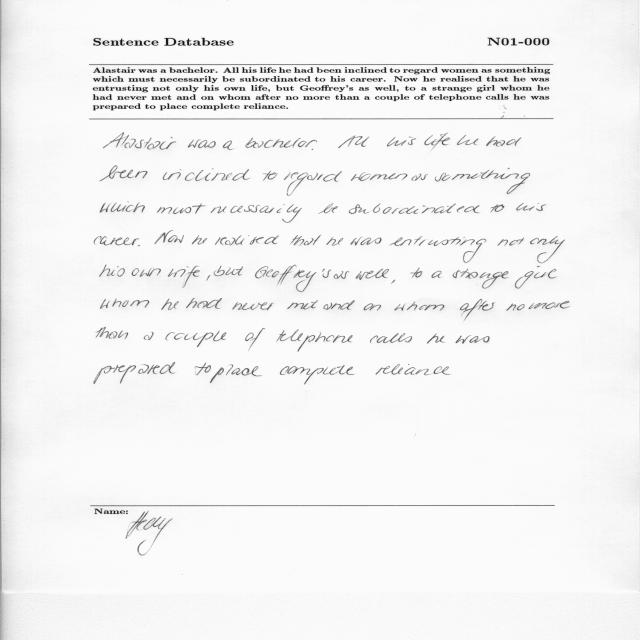 Sentence Database N01-000
Alastair was a bachelor. All his life he had been inclined to regard women as something
which must necessarily be subordinated to his career. Now he realised that he was
entrusting not only his own life, but Geoffrey's as well, to a strange girl whom he
had never met and on whom after no more than a couple of telephone calls he was
prepared to place complete reliance.
Alastair was a bachelor. All his life he had
been inclined to regard women as something
which must necessarily be subordinated to his
career. Now he realised that he was entrusting not only
his own wife, but Geoffrey's as well, to a strange girl
whom he had never met and on whom after no more
than a couple of telephone calls he was
prepared to place complete reliance
Name: